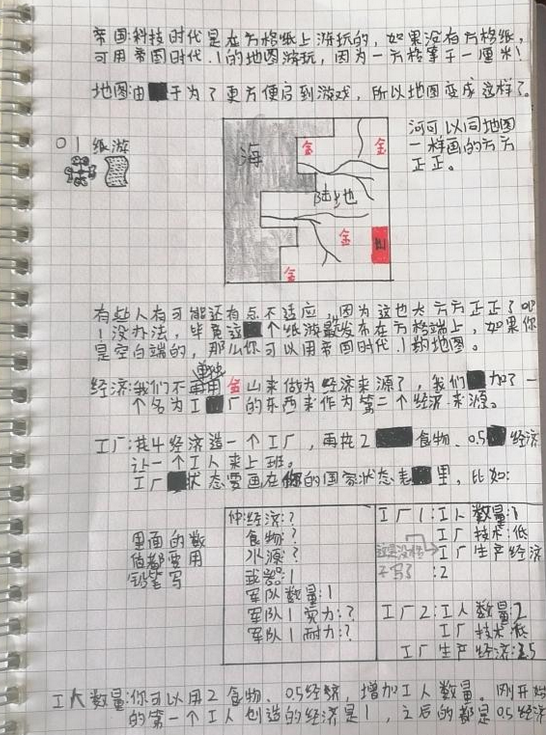 帝国:科技时代是在方格纸上游玩的，如果没有方格纸，
可用帝国时代.1的地图游玩，因为一方格等于一厘米！
地图由于为了更方便启到游戏，所以地图变成这样了。
01 纸游
海
金
金
陆地
金
山
金
河可以同地图
一样画的方方
正正。
有些人有可能还有点不适应，因为这也太方方正正了吧
！没办法，毕竟这个纸游最发布在方格端上，如果你
是空白端的，那么你可以用帝国时代.1的地图。
经济:我们不单独用金山来做为经济来源了，我们加了一
个名为工厂的东西来作为第二个经济来源。
工厂:花4经济造一个工厂，再花2食物、0.5经济
让一个工人来上班。
工厂状态要画在你的国家状态表里，比如:
里面的数
值都要用
铅笔写
经济:?
食物:?
水源:?
武器:1
军队数量:1
军队1实力:?
军队1耐力:?
工厂1:工人数量:1
工厂技术:低
工厂生产经济
:2
不写了
工厂2:工人数量:2
工厂技术:低
工厂生产经济:2.5
工人数量:你可以用2食物、0.5经济，增加工人数量。刚开始
的第一个工人创造的经济是1，之后的都是0.5经济